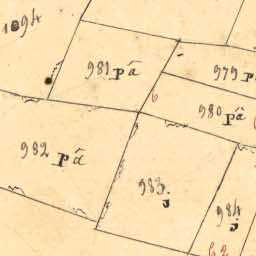 1894
981 pâ
979 pâ
980 pâ
982 pâ
983.
J
984
J